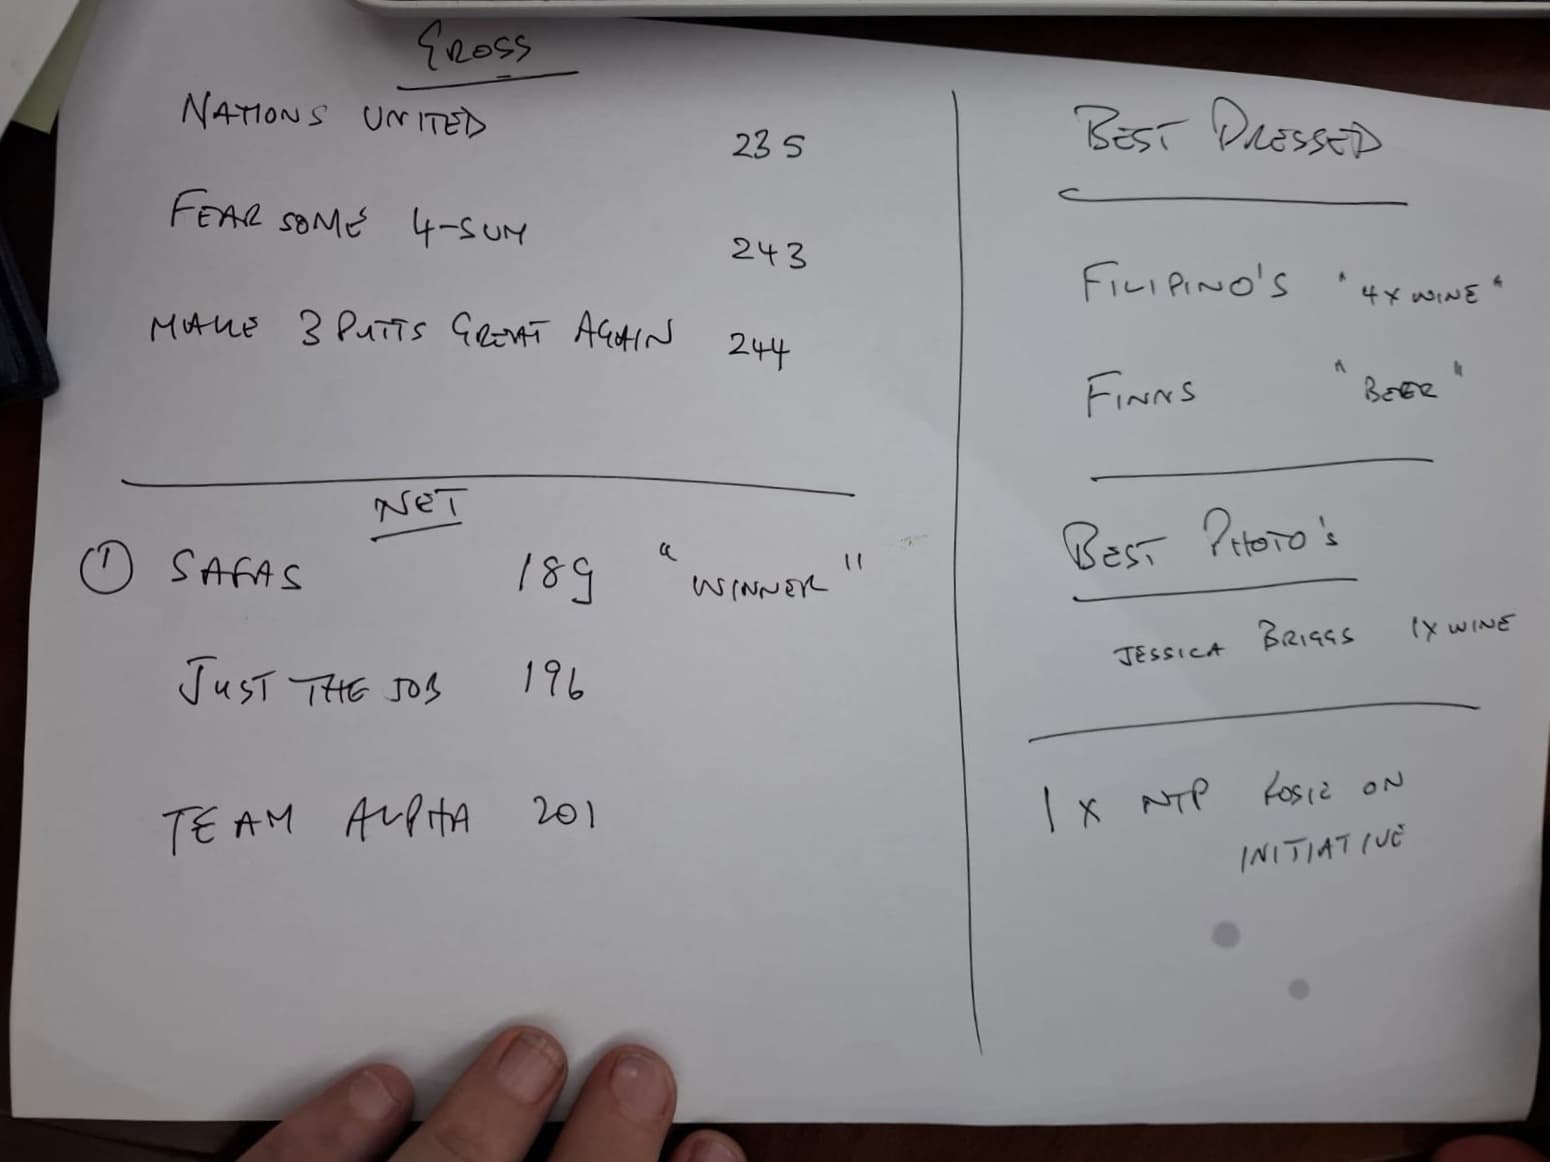 GROSS
NATIONS UNITED 235
FEARSOME 4-SUM 243
MAKE 3 PUTTS GREAT AGAIN 244
NET
① SAFAS 189 "WINNER"
JUST THE JOB 196
TEAM ALPHA 201
BEST DRESSED
FILIPINO'S "4X WINE"
FINNS "BEER"
BEST PHOTO'S
JESSICA BRIGGS 1X WINE
1 X NTP ON
INITIATIVE